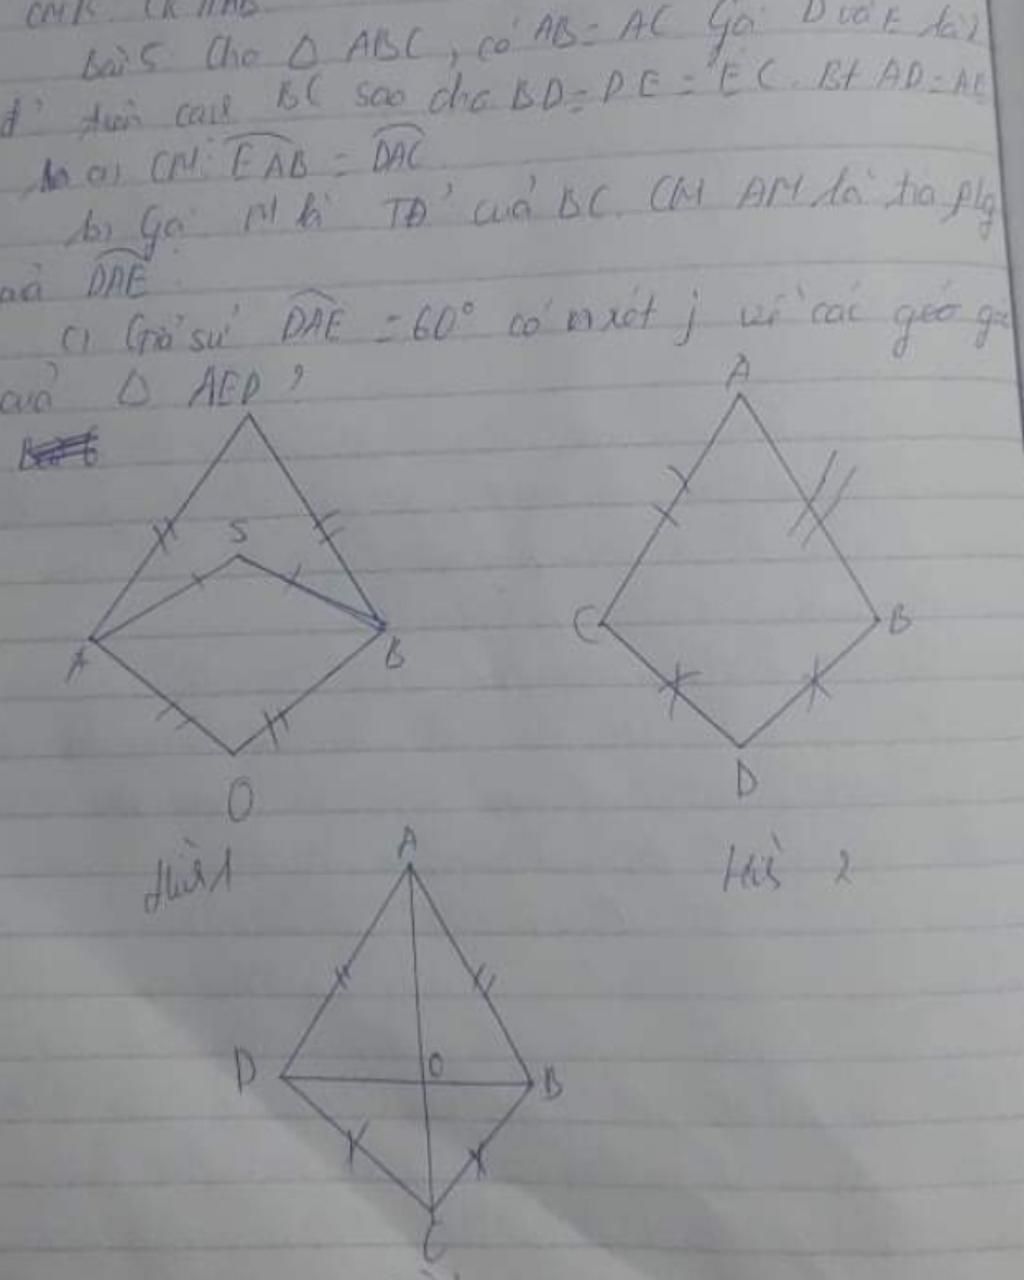 CMR CK // AB
bài 5 Cho △ ABC, có AB = AC Gọi D và E là 2
đ' trên cạnh BC sao cho BD = DE = EC. Bt AD = AE
a, CM: EAB = DAC
b, Gọi M là TĐ' của BC. CM AM là tia p/g
của DAE
c, Giả sử DAE = 60° có nxét j về các góc
của △ AED ?
A
S
A B
C B
O
D
A
Hình 1
Hình 2
D O B
C